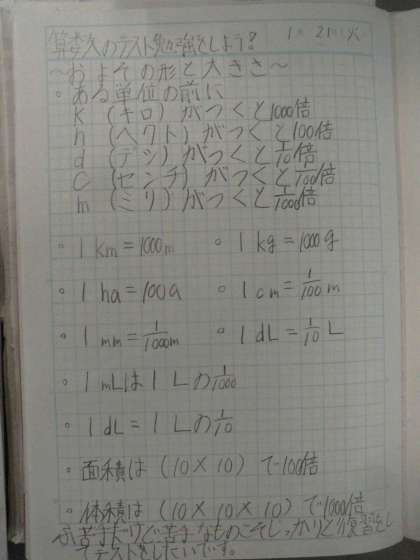 算数のテスト勉強をしよう! 1月21日(火)
〜およその形と大きさ〜
○ある単位の前に
K(キロ)がつくと1000倍
h(ヘクト)がつくと100倍
d(デシ)がつくと1/10倍
C(センチ)がつくと1/100倍
m(ミリ)がつくと1/1000倍
○1km=1000m ○1kg=1000g
○1ha=100a ○1cm=1/100m
○1mm=1/1000m ○1dL=1/10L
○1mLは1Lの1/1000
○1dL=1Lの1/10
○面積は(10×10)で100倍
○体積は(10×10×10)で1000倍
苦手なものこそしっかりと復習をし
てテストをしたいです。